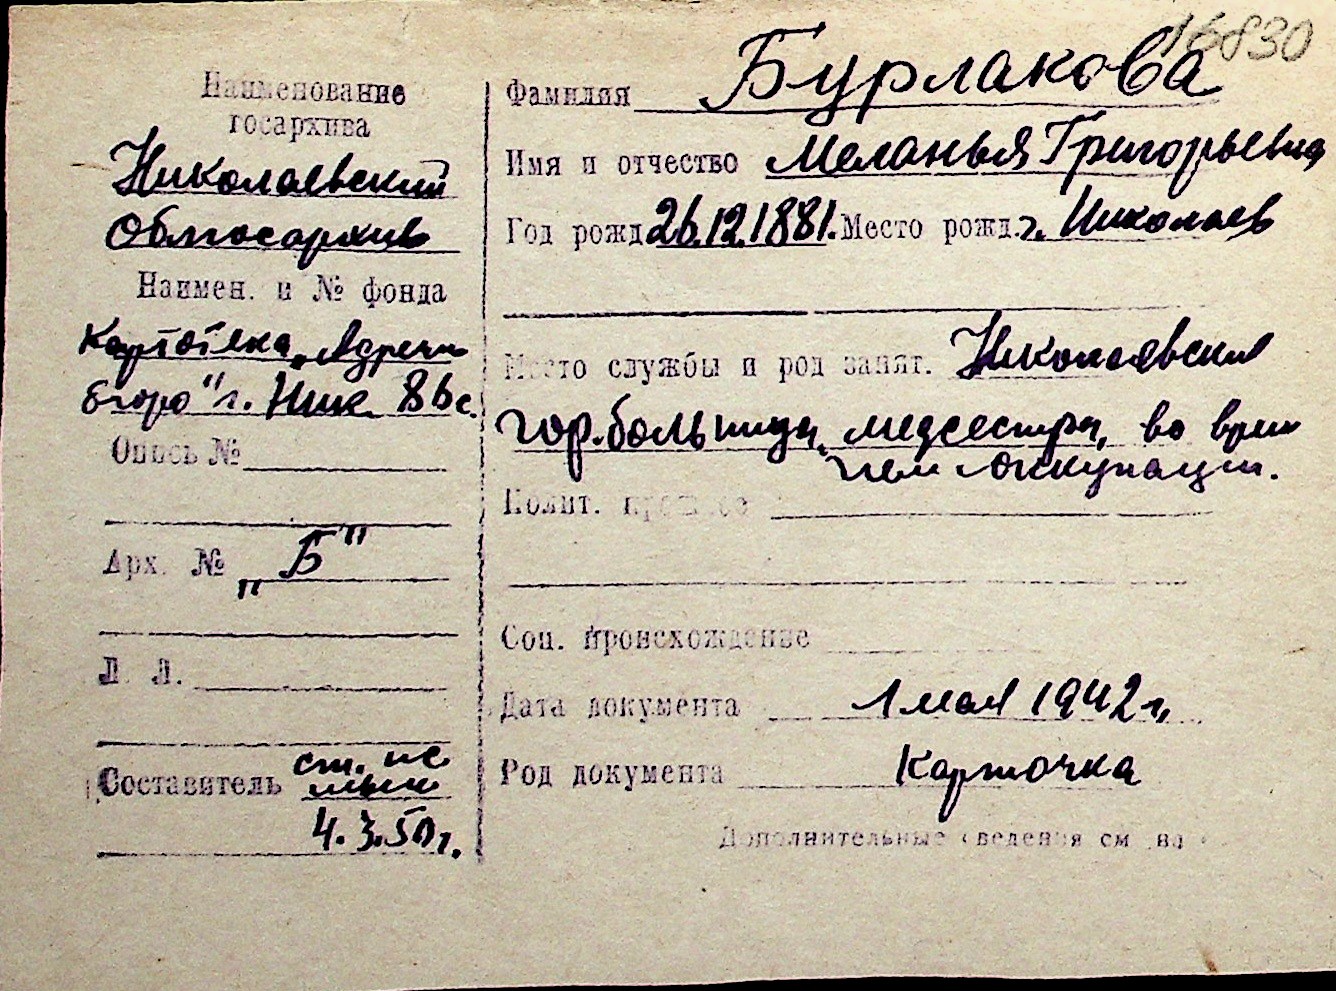 16830
Наименование
госархива
Николаевский
Облгосархив
Наимен. и № фонда
Картотека „Адресн
бюро" г. Ник.
Опись №
Арх. № „Б"
Л. Л.
Составитель ст.
4.3.50г.
Фамилия Бурлакова
Имя и отчество Меланья Григорьевна
Год рожд 26.12.1881. Место рожд. г. Николаев
Место службы и род занят. Николаевская
гор.больница, медсестра, во врем
нем. оккупации.
Полит. прошлое
Соц. происхождение
Дата документа 1 мая 1942 г.
Род документа Карточка
Дополнительные сведения см на